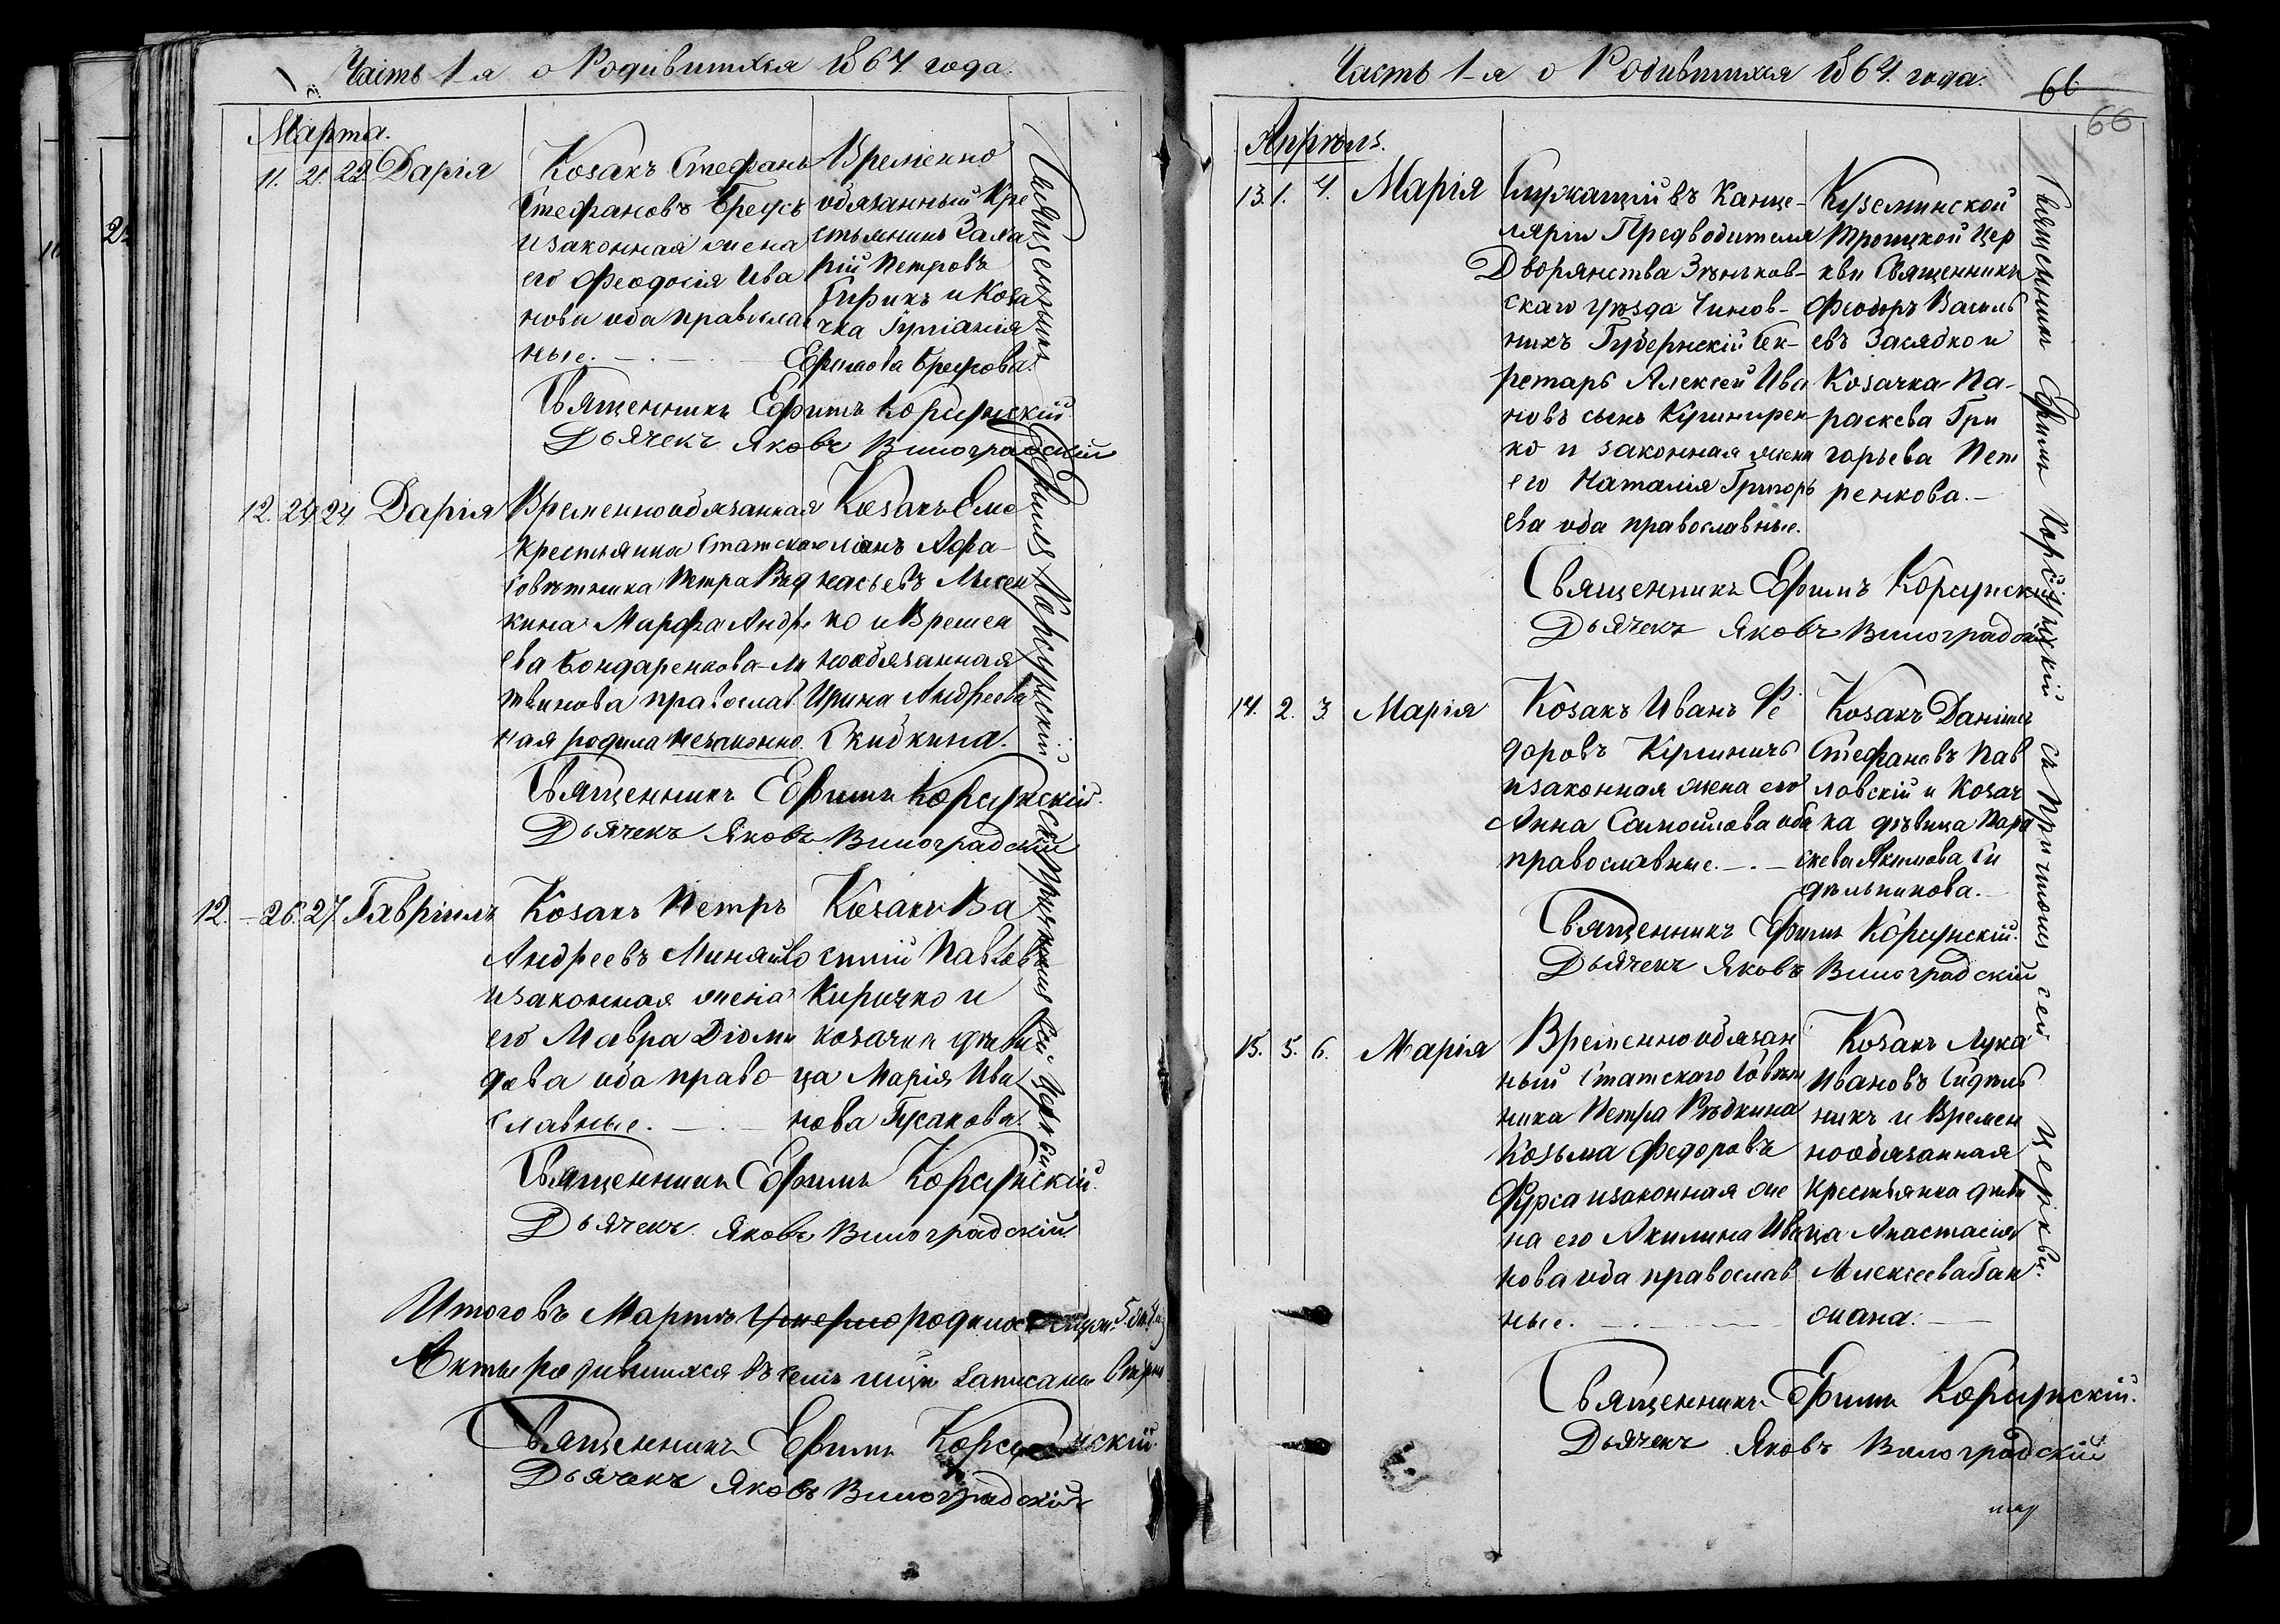 Часть 1-я о Родившихся 1864 года.
Марта.
11. 21. 22. Дарія
Козакъ Стефанъ
Стефановъ Бреусъ
и законная жена
его Феодосія Ива
нова оба православ
ные.
Временно
обязанный Кре
стьянинъ Заха
рій Петровъ
Гирикъ и Коза
чка Гупіанія
Ефимова Бреусова.
Священникъ Ефимъ Корсунскій
Дьячекъ Яковъ Виноградскій
12. 24 24 Дарія
Временнообязанная
Крестьянка Статскаго
Совѣтника Петра Рѣд
кина Марфа Андре
ева Бондаренкова-Ли
твинова православ
ная родила незаконно.
Козакъ Еме
ліанъ Афа-
насьевъ Мисен
ко и Времен
нообязанная
Ирина Андреева
Скибкина.
Священникъ Ефимъ Корсунскій.
Дьячекъ Яковъ Виноградскій
12. - 26. 27. Гавріилъ
Козакъ Петръ
Андреевъ Миняйло
и законная жена
его Мавра Діоми
дова оба право-
славные.
Козакъ Ва
силій Павловъ
Киричко и
козачка дѣви
ца Марія Ива
нова Гусакова.
Священникъ Ефимъ Корсунскій.
Дьячекъ Яковъ Виноградскій
Итого въ Мартѣ родилось
Акты родившихся въ семъ мцѣ записаны вѣрно
Священникъ Ефимъ Корсунскій.
Дьячекъ Яковъ Виноградскій
Священникъ Ефимъ Корсунскій съ Причтомъ сей Церкви
Часть 1-я о Родившихся 1864. года.
66
66
Апрѣль.
13. 1. 4. Марія
Служащій въ Канце-
ляріи Предводителя
Дворянства Зѣньков-
скаго уѣзда Чинов-
никъ Губернскій Сек-
ретарь Алексей Ива
новъ сынъ Кушнирен
ко и законная жена
его Наталія Григорь
ева оба православные.
Куземинской
Троицкой Цер
кви Священникъ
Феодоръ Василь
евъ Засядко и
Козачка Па-
раскева Гри
горьева Пет
ренкова.-
Священникъ Ефимъ Корсунскій
Дьячекъ Яковъ Виноградскій
14. 2. 3. Марія
Козакъ Иванъ Ѳе
доровъ Кушниръ
и законная жена его
Анна Самойлова оба
православные.
Козакъ Даніилъ
Стефановъ Пав
ловскій и Козач
ка дѣвица Пара
скева Акимова Си
дѣльникова.
Священникъ Ефимъ Корсунскій.
Дьячекъ Яковъ Виноградскій
15. 5. 6. Марія
Временнообязан
ный Статскаго Совѣт
ника Петра Рѣдкина
Козьма Федоровъ
Фурса и законная же
на его Акилина Ива
нова оба православ
ные.
Козакъ Лука
Ивановъ Сидѣль
никъ и Времен
нообязанная
Крестьянка дѣви
ца Анастасія
Алексѣева Ган
жана.
Священникъ Ефимъ Корсунскій.
Дьячекъ Яковъ Виноградскій
Священникъ Ефимъ Корсунскій съ Причтомъ сей Церкви.